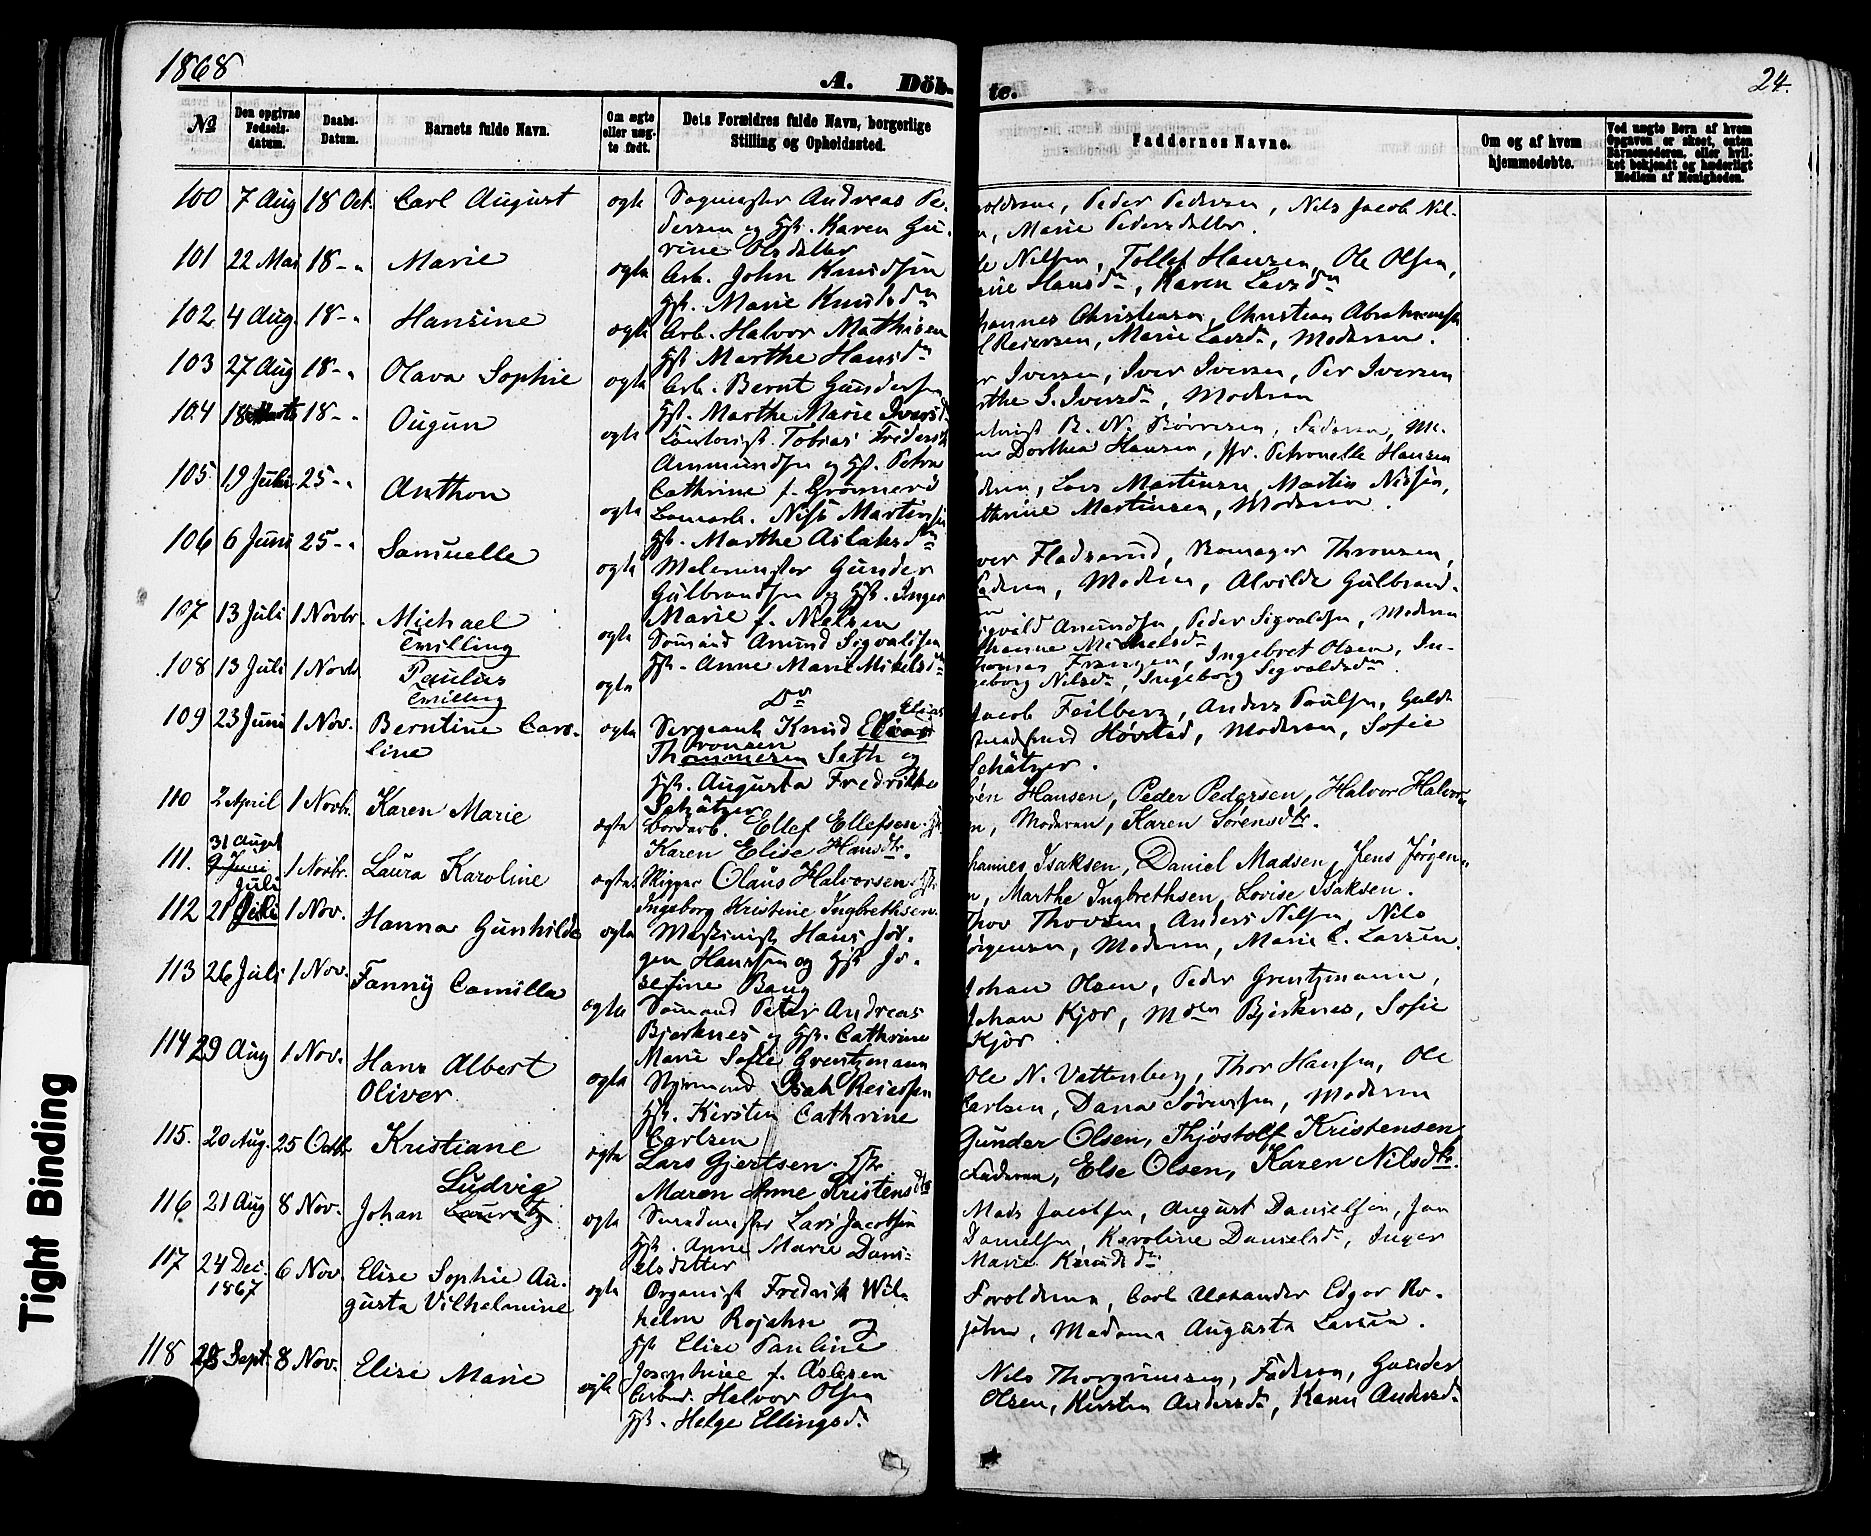 1868
A. Döb-
te.
24.
No
Den opgivne Fødsels-datum.
Daabs-Datum.
Barnets fulde Navn.
Om ægte eller uæg-te født.
Dets Forældres fulde Navn, borgerlige Stilling og Opholdssted.
Faddernes Navne.
Om og af hvem hjemmedøbte.
Ved uægte Børn af hvem Opgaven er skeet, enten Barnemoderen, eller hvil-ket bekjendt og hæderligt Medlem af Menigheden.
100 7 Aug 18 Oct. Carl August ægte
Andreas Pe-
dersen og Hst. Karen Gu-
rine Olsdatter
Peder Pedersen, Nils Jacob Nil-
n, Marie Pedersdatter.
101 22 Mai 18 - " Marie ægte
Arb. John Knudsen
Hst. Marie Knudsdn
Nilsen, Tollef Hansen, Ole Olsen,
Hansdn, Karen Larsdn
102 4 Aug. 18 - " Hansine ægte
Arb. Halvor Mathisen
Hst Marthe Hansdn
hannes Christensen, Christian Abrahamsen
Reiersen, Marie Larsdn, Moderen.
103 27 Aug 18 - " Olava Sophie ægte
Arb. Bernt Gundersen
Hst. Marthe Marie Iversd
r Iversen, Iver Iversen, Per Iversen
rthe S. Iversdn, Moderen
104 18 18 - " Ougun ægte
Tobias Frederik
Ammundsen og Hst. Petra
Cathrine f. Grønnerø
B. N. Børresen, Faderen, Ma-
Dorthea Hansen, Jfr. Petronelle Hansen
105 19 Juli 25 - " Anthon ægte
Nils Martinsen
Hst. Marthe Aslaksdn
Lars Martinsen, Martin Nilsen,
thrine Martinsen, Moderen.
106 6 Juni 25 - " Samuelle ægte
Malermester Gunder
Gulbrandsen og Hst. Inger
Marie f. Nielsen
ver Fladserud, Thronsen,
aderen, Moderen, Alvilde Gulbrand-
107 13 Juli 1 Novbr. Michael
Tvilling
ægte
Sømand Anund Sigvaldsen
Hst. Anne Marie Mikelsdn
igvald Anundsen, Peder Sigvaldsen, Moderen
Michelsdn
108 13 Juli 1 Novb Paulus
Tvilling
ægte
Do
Ingebret Olsen, In-
geborg Nilsdn, Ingeborg Sigvaldsdn
109 23 Juni 1 Nov. Berntine Caro-
line
ægte
Elias
Sergeant Knud Elias
Thronsen
Thommesen Seth og
Hst. Augusta Fredrikke
Schätzer
Jacob Feilberg, Anders Poulsen, Guld-
smedsvend Høvstad, Moderen, Sofie
Schätzer.
110 2 April 1 Novbr. Karen Marie ægte
Bordarb. Ellef Ellefsen. Hst
Karen Elise Hansdtr.
ren Hansen, Peder Pedersen, Halvor Halvor-
n, Moderen, Karen Sørensdtr.
111. 31 August
9 Juni
1 Novbr. Laura Karoline ægte
Skipper Olaus Halvorsen. Hst
Ingeborg Kristine Ingbrethsen.
hannes Isaksen, Daniel Madsen, Jens Jørgen-
n, Marthe Ingbrethsen, Lovise Isaksen.
112 Juli
21 Juli 1 Nov. Hanna Gunhilde ægte
Maskinist Hans Jør-
gen Hansen og Hst Jo-
sefine Bang
Thor Thorsen, Anders Nilsen, Nils
Jørgensen, Moderen, Marie C. Larsen.
113 26 Juli 1 Nov. Fanny Camilla ægte
Sømand Peter Andreas
Bjerknes og Hst. Cathrine
Marie Sofie Grentzmann
Johan Olsen, Peder Grentzmann,
Johan Kjær, Mden Bjerknes, Sofie
Kjær.
114 29 Aug 1 Nov. Hans Albert
Oliver
ægte
Styrmand Isak Reiersen
Hst. Kirsten Cathrine
Carlsen
Ole N. Vattenberg, Thor Hansen, Ole
Carlsen, Dana Sørensen, Moderen
115. 20 Aug. 25 Octbr Kristiane ægte
Lars Gjertsen. Hst
Maren Anne Kristensdtr
Gunder Olsen, Thjøstolf Kristensen,
Faderen, Else Olsen, Karen Nilsdtr.
116 21 Aug 8 Nov. Ludvig
Johan Lauritz
ægte
Smedmester Lars Jacobsen
Hst. Anne Marie Dani-
elsdatter
Mads Jacobsen, August Danielsen, Jan
Danielsen, Karoline Danielsdn, Inger
Marie Knudsdn
117 24 Dec.
1867
6 Nov. Elise Sophie Au-
gusta Vilhelmine
ægte
Organist Fredrik Wil-
helm Rojahn og
Hst Elise Pauline
Josephine f. Aslesen
Forældrene, Carl Alexander Edgar Ro-
jahn, Madame Augusta Larsen.
118 28 Sept. 8 Nov. Elise Marie ægte
Arbmd. Halvor Olsen
Hst. Helge Ellingsdn
Nils Thorgrimsen, Faderen, Gunder
Olsen, Kirsten Andersdn, Karen Andersdn
Tight Binding